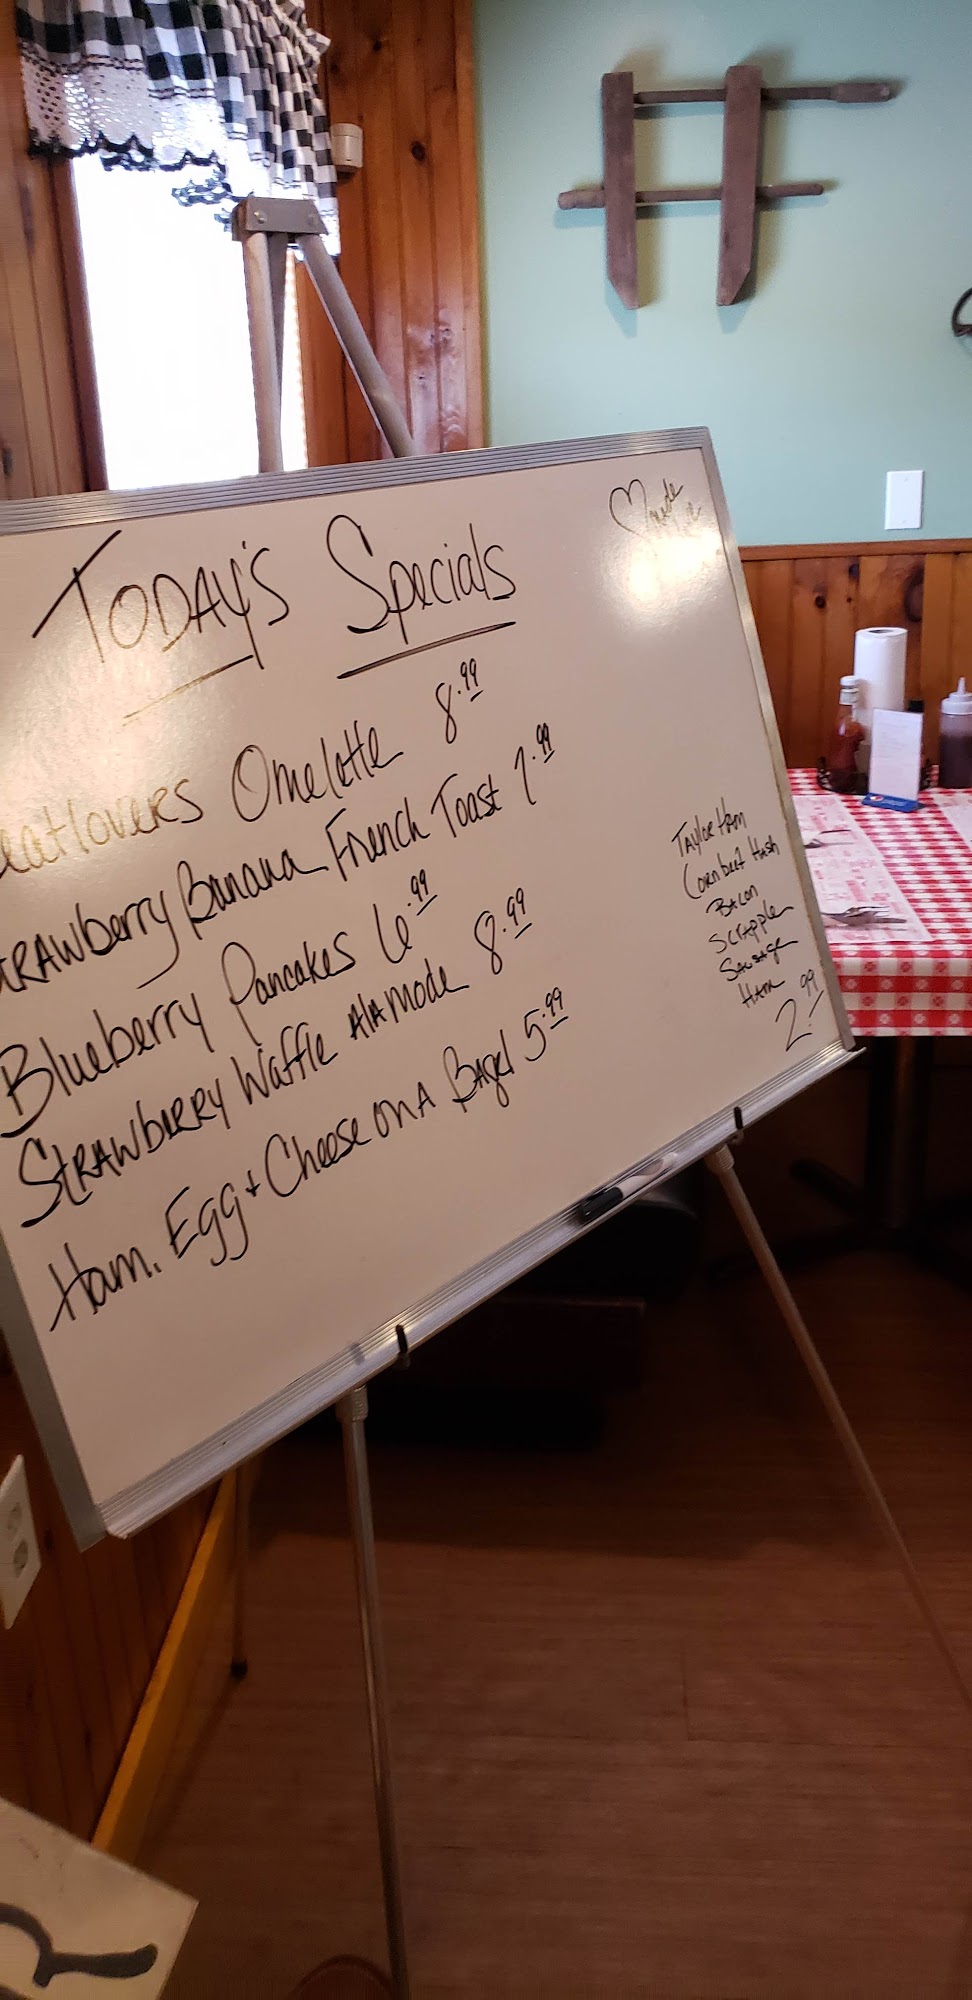 Today's Specials
eatlovers Omelette 8.99
Strawberry Banana French Toast 7.99
Blueberry Pancakes 6.99
Strawberry Waffle Alamode 8.99
Ham, Egg + Cheese on a Bagel 5.99
Taylor Ham
Corn beef Hash
Bacon
Scrapple
Sausage
Ham
2.99